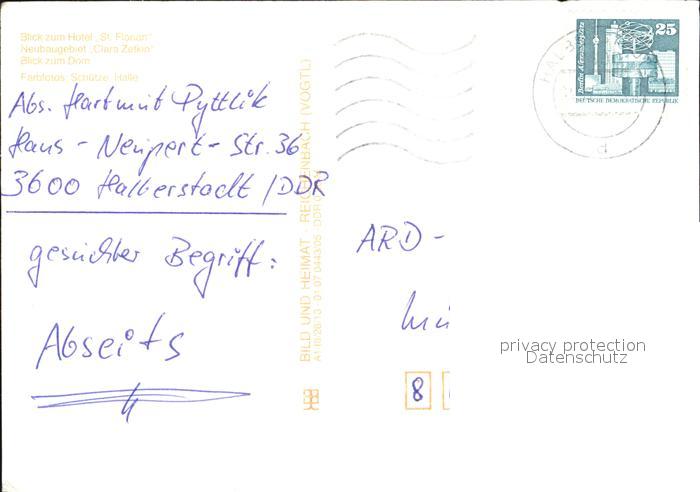 Blick zum Hotel „St. Florian“
Neubaugebiet „Clara Zetkin“
Blick zum Dom
Farbfotos: Schütze, Halle
Abs. Hartmut Pyttlik
Hans-Neupert-Str. 36
3600 Halberstadt / DDR
gesuchter Begriff:
Abseits
BILD UND HEIMAT · REICHENBACH (VOGTL)
25
DEUTSCHE DEMOKRATISCHE REPUBLIK
HALB
d
ARD-
8
privacy protection
Datenschutz